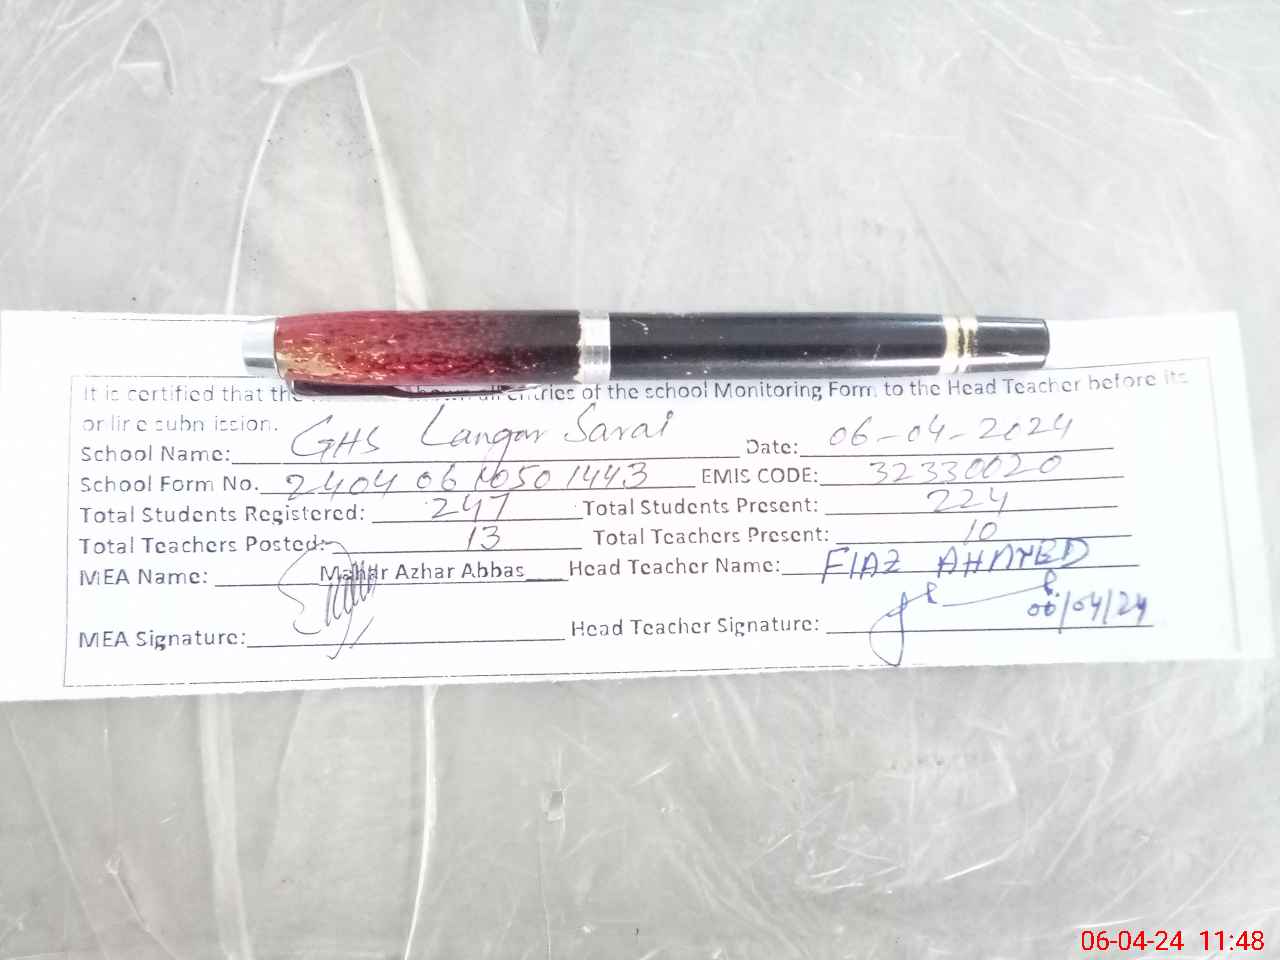 It is certified that the all entries of the school Monitoring Form to the Head Teacher before its
online submission.
School Name: GHS Langar Sarai Date: 06-04-2024
School Form No. 2404061050 1443 EMIS CODE: 32330020
Total Students Registered: 247 Total Students Present: 224
Total Teachers Posted: 13 Total Teachers Present: 10
MEA Name: Azhar Abbas Head Teacher Name: FIAZ AHMED
06/04/24
MEA Signature: Head Teacher Signature:
06-04-24 11:48